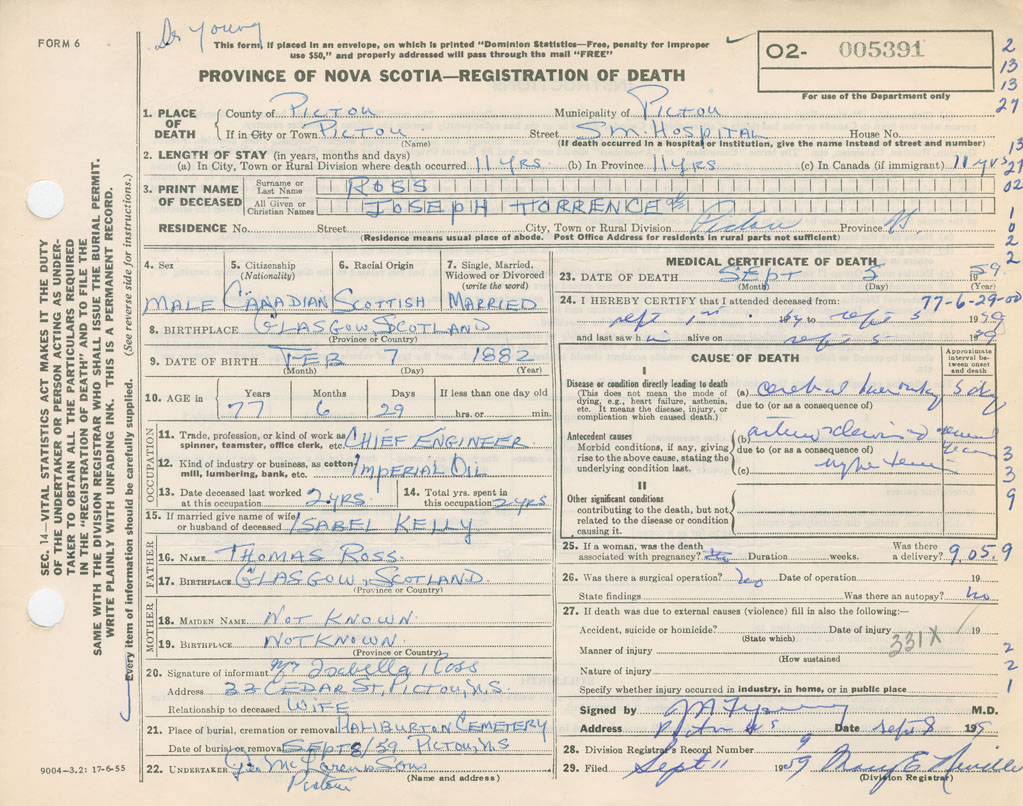 FORM 6
Dr Young
This form, if placed in an envelope, on which is printed "Dominion Statistics—Free, penalty for improper
use $50," and properly addressed will pass through the mail "FREE"
PROVINCE OF NOVA SCOTIA—REGISTRATION OF DEATH
02- 005391
For use of the Department only
2
13
13
27
13
27
02
1
0
2
2
1. PLACE OF DEATH
County of PICTOU Municipality of PICTOU
If in City or Town PICTOU Street SM. HOSPITAL House No.
(Name) (If death occurred in a hospital or institution, give the name instead of street and number)
2. LENGTH OF STAY (in years, months and days)
(a) In City, Town or Rural Division where death occurred 11 YRS. (b) In Province 11 YRS (c) In Canada (if immigrant) 11 YRS
3. PRINT NAME OF DECEASED
Surname or Last Name ROSS
All Given or Christian Names JOSEPH TORRENCE
RESIDENCE No. Street City, Town or Rural Division Pictou Province NS.
(Residence means usual place of abode. Post Office Address for residents in rural parts not sufficient)
4. Sex 5. Citizenship (Nationality) 6. Racial Origin 7. Single, Married, Widowed or Divorced (write the word)
MALE CANADIAN SCOTTISH MARRIED
8. BIRTHPLACE GLASGOW, SCOTLAND
(Province or Country)
9. DATE OF BIRTH FEB 7 1882
(Month) (Day) (Year)
10. AGE in Years Months Days If less than one day old
77 6 29 hrs. or min.
OCCUPATION
11. Trade, profession, or kind of work as spinner, teamster, office clerk, etc. CHIEF ENGINEER
12. Kind of industry or business, as cotton mill, lumbering, bank, etc. IMPERIAL OIL
13. Date deceased last worked at this occupation 2 YRS. 14. Total yrs. spent in this occupation 2 YRS
15. If married give name of wife or husband of deceased ISABEL KELLY
FATHER
16. NAME THOMAS ROSS.
17. BIRTHPLACE GLASGOW, SCOTLAND.
(Province or Country)
MOTHER
18. MAIDEN NAME NOT KNOWN.
19. BIRTHPLACE NOT KNOWN.
(Province or Country)
20. Signature of informant Isabella Ross
Address 33 CEDAR ST, PICTOU, N.S.
Relationship to deceased WIFE
21. Place of burial, cremation or removal HALIBURTON CEMETERY
Date of burial or removal SEPT 8/59 PICTOU, NS
22. UNDERTAKER McLaren & Sons
Pictou (Name and address)
9004-3.2: 17-6-55
MEDICAL CERTIFICATE OF DEATH
23. DATE OF DEATH SEPT 5 1959.
(Month) (Day) (Year)
24. I HEREBY CERTIFY that I attended deceased from: 77-6-29-00
sept 1st 1959 to sept 5 1959
and last saw him alive on sept 5 1959
CAUSE OF DEATH
Approximate interval between onset and death
I
Disease or condition directly leading to death
(This does not mean the mode of dying, e.g., heart failure, asthenia, etc. It means the disease, injury, or complication which caused death.)
(a) cerebral 5 day
due to (or as a consequence of)
Antecedent causes
Morbid conditions, if any, giving rise to the above cause, stating the underlying condition last.
(b)
due to (or as a consequence of)
(c)
3
3
9
II
Other significant conditions
contributing to the death, but not related to the disease or condition causing it.
25. If a woman, was the death associated with pregnancy? Duration weeks. Was there a delivery? 9.05.9
26. Was there a surgical operation? no Date of operation 19
State findings Was there an autopsy? no
27. If death was due to external causes (violence) fill in also the following:—
Accident, suicide or homicide? Date of injury 19
(State which)
331X
Manner of injury 2
(How sustained)
Nature of injury 2
Specify whether injury occurred in industry, in home, or in public place 1
Signed by M.D.
Address Pictou NS Date Sept 8 1959
28. Division Registrar's Record Number 9
29. Filed Sept 11 1959 Mary E. Neville
(Division Registrar)
SEC. 14—VITAL STATISTICS ACT MAKES IT THE DUTY
OF THE UNDERTAKER OR PERSON ACTING AS UNDER-
TAKER TO OBTAIN ALL THE PARTICULARS REQUIRED
IN THE "REGISTRATION OF DEATH" AND TO FILE THE
SAME WITH THE DIVISION REGISTRAR WHO SHALL ISSUE THE BURIAL PERMIT.
WRITE PLAINLY WITH UNFADING INK. THIS IS A PERMANENT RECORD.
Every item of information should be carefully supplied. (See reverse side for instructions.)